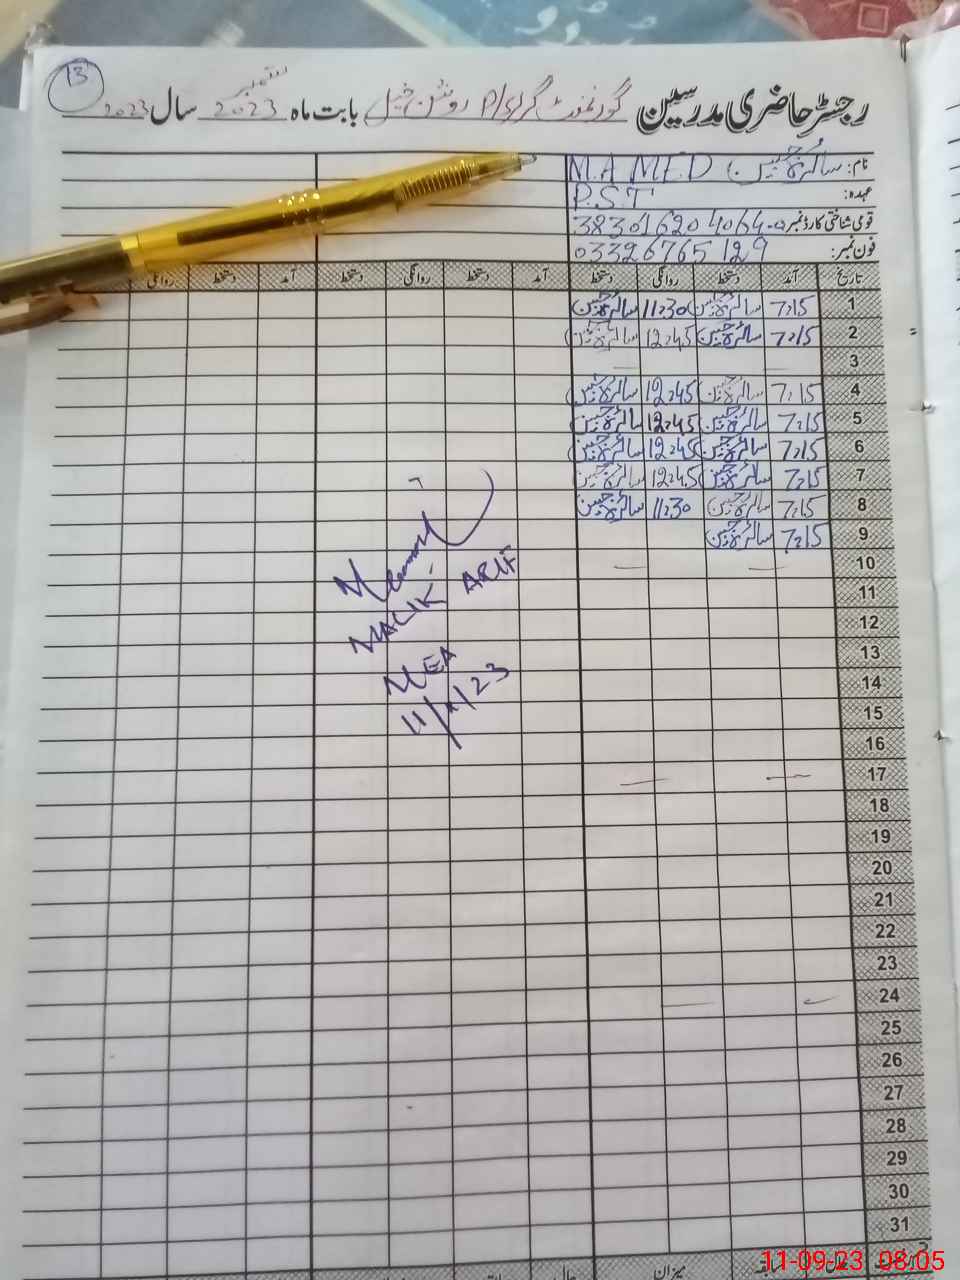 13
رجسٹر حاضری مدرسین گورنمنٹ گرلز P/S روشن خیل بابت ماہ ستمبر 2023 سال 2023
نام: سائرہ جبین M.A M.E.D
عہدہ: P.S.T
قومی شناختی کارڈ نمبر 38301620 4064-0
فون نمبر: 03326765 129
تاریخ آمد دستخط روانگی دستخط آمد دستخط روانگی دستخط آمد دستخط روانگی
1 7:15 سائرہ جبین 11:30 سائرہ جبین
2 7:15 سائرہ جبین 12:45 سائرہ جبین
3 — —
4 7:15 سائرہ جبین 12:45 سائرہ جبین
5 7:15 سائرہ جبین 12:45 سائرہ جبین
6 7:15 سائرہ جبین 12:45 سائرہ جبین
7 7:15 سائرہ جبین 12:45 سائرہ جبین
8 7:15 سائرہ جبین 11:30 سائرہ جبین
9 7:15 سائرہ جبین
10 — —
11
12
13
14
15
16
17 — —
18
19
20
21
22
23
24 — —
25
26
27
28
29
30
31
MALIK ARIF
MEA
میزان
11-09-23 08:05